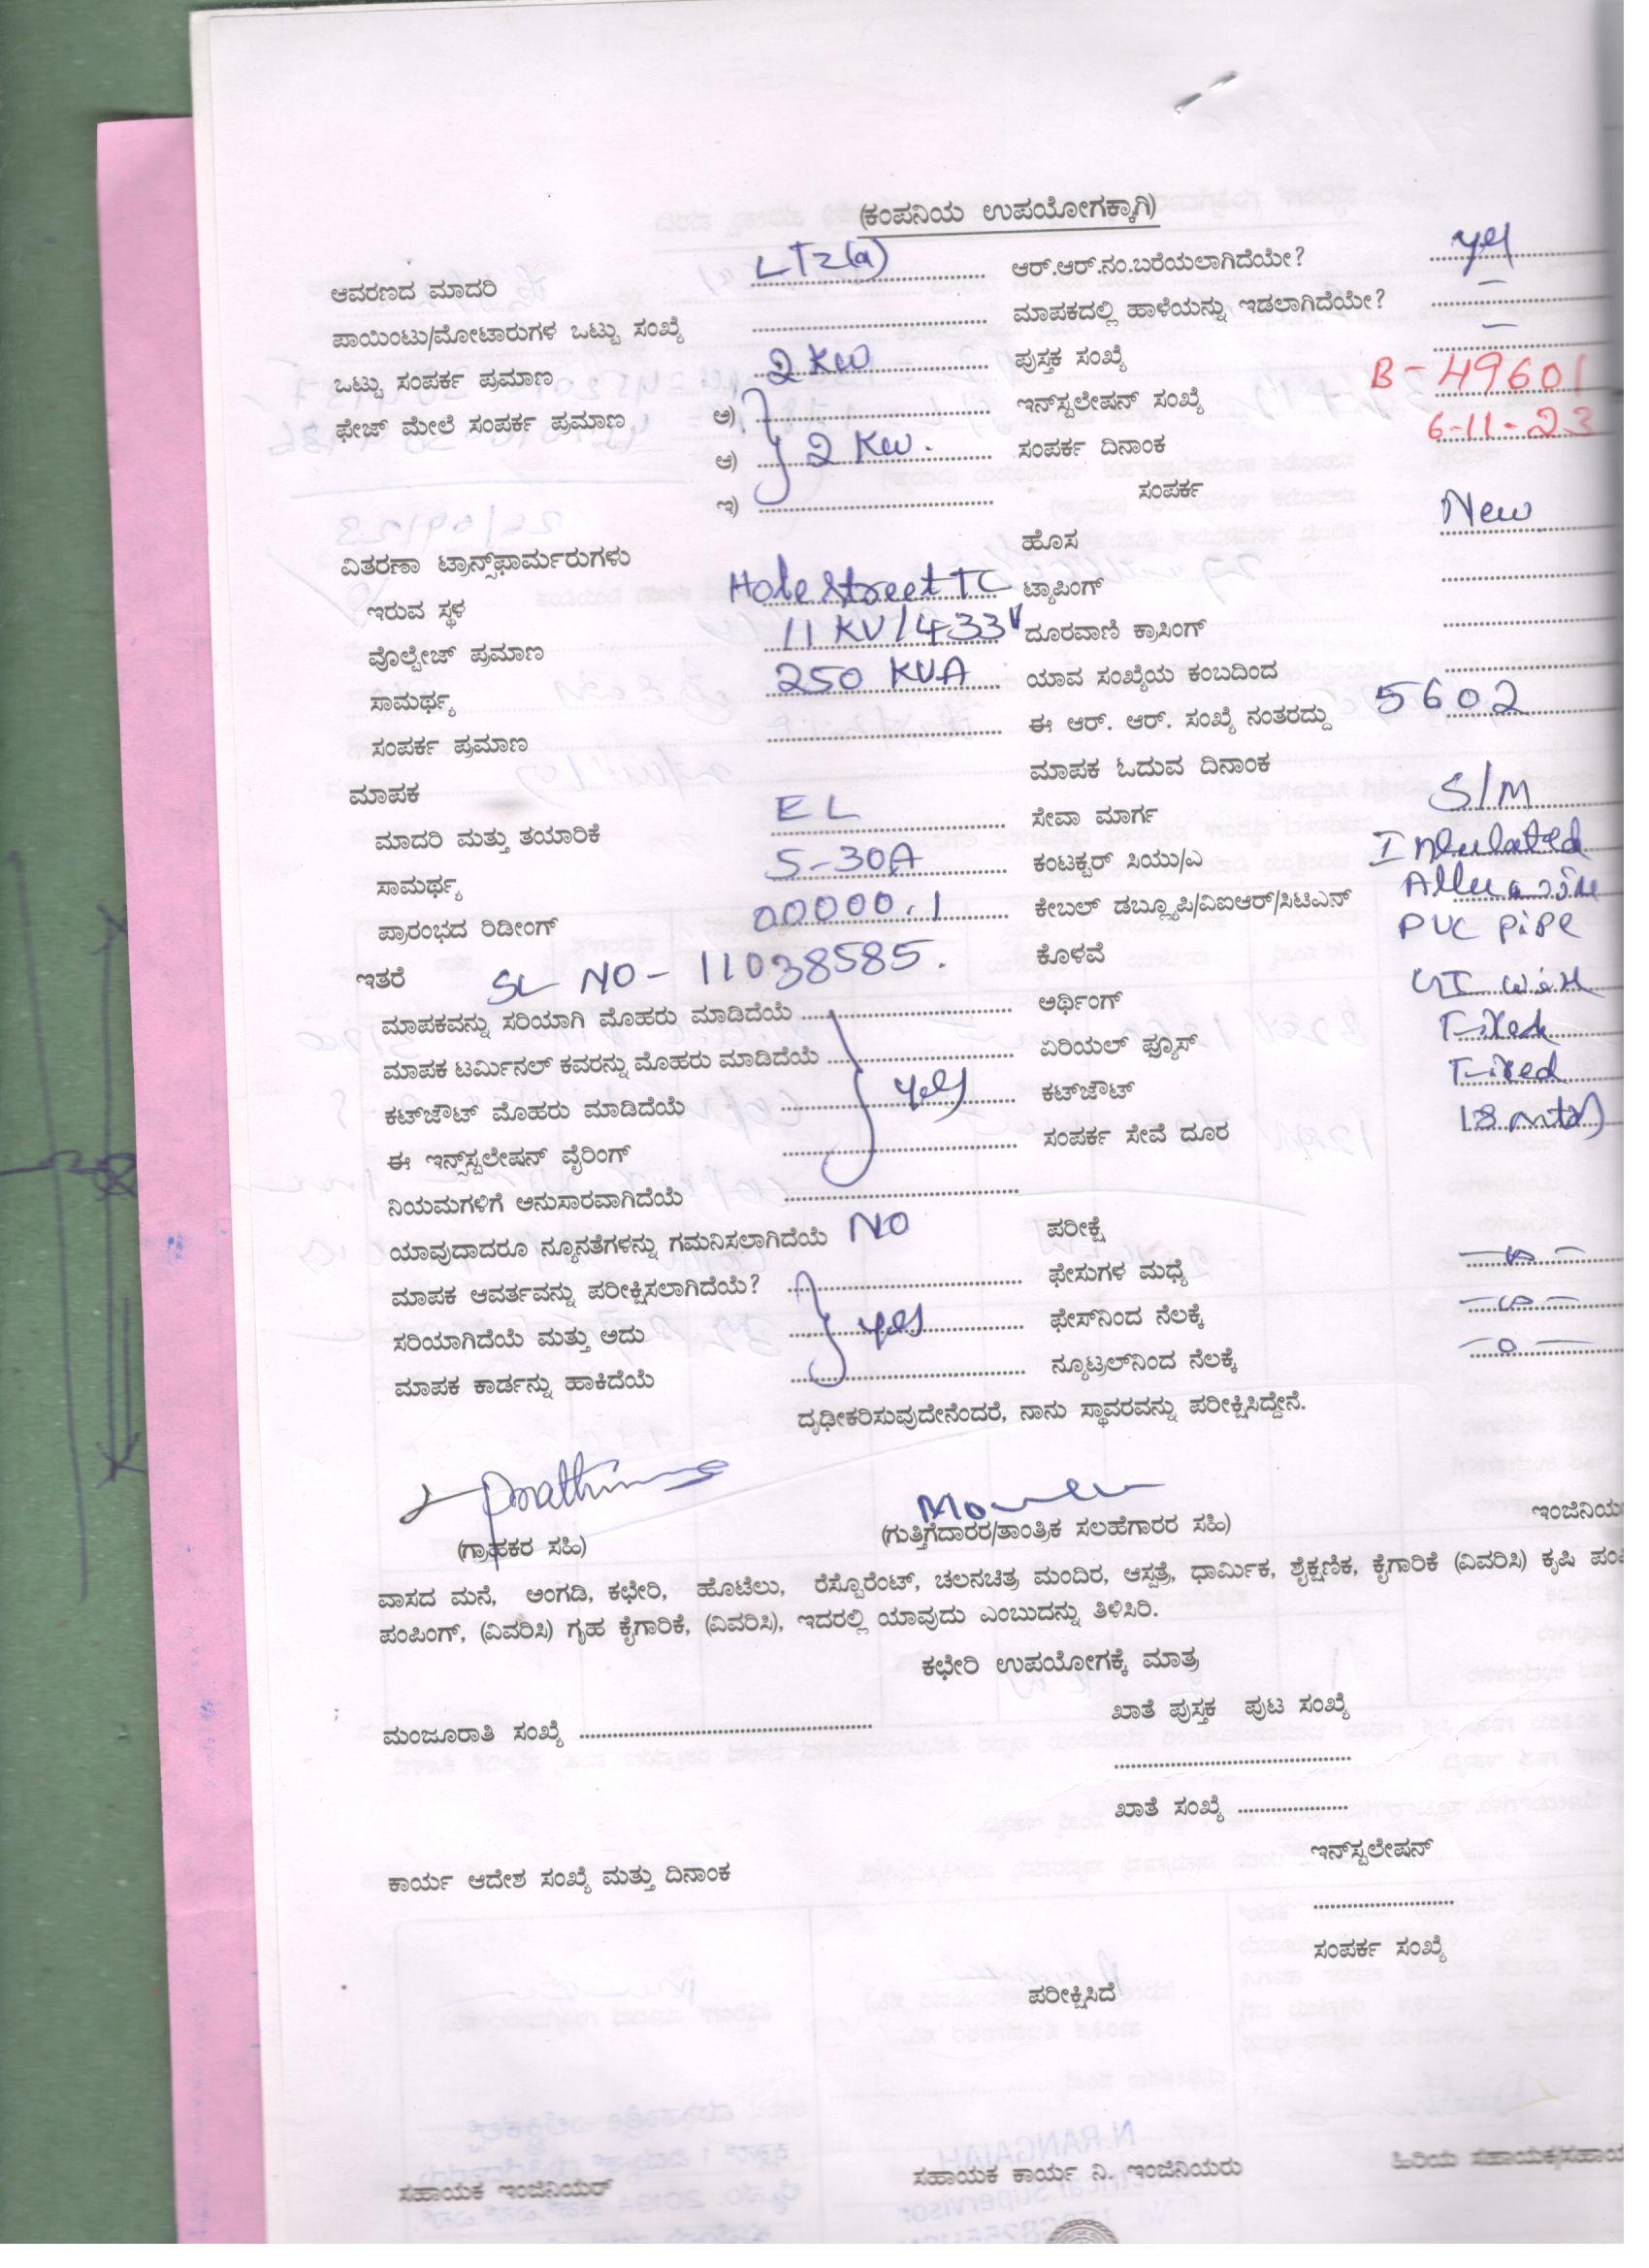 (ಕಂಪನಿಯ ಉಪಯೋಗಕ್ಕಾಗಿ)
ಆವರಣದ ಮಾದರಿ LT2(a) ಆರ್.ಆರ್.ನಂ.ಬರೆಯಲಾಗಿದೆಯೇ? yes
ಪಾಯಿಂಟು/ಮೋಟಾರುಗಳ ಒಟ್ಟು ಸಂಖ್ಯೆ ಮಾಪಕದಲ್ಲಿ ಹಾಳೆಯನ್ನು ಇಡಲಾಗಿದೆಯೇ? –
ಒಟ್ಟು ಸಂಪರ್ಕ ಪ್ರಮಾಣ 2 KW ಪುಸ್ತಕ ಸಂಖ್ಯೆ –
ಫೇಜ್ ಮೇಲೆ ಸಂಪರ್ಕ ಪ್ರಮಾಣ ಅ) ಇನ್‌ಸ್ಟಲೇಷನ್ ಸಂಖ್ಯೆ B-49601
ಆ) 2 KW. ಸಂಪರ್ಕ ದಿನಾಂಕ 6-11-23
ಇ) ಸಂಪರ್ಕ
ವಿತರಣಾ ಟ್ರಾನ್ಸ್‌ಫಾರ್ಮರುಗಳು ಹೊಸ New
ಇರುವ ಸ್ಥಳ Hole Street TC ಟ್ಯಾಪಿಂಗ್
ವೊಲ್ಟೇಜ್ ಪ್ರಮಾಣ 11 KV/433V ದೂರವಾಣಿ ಕ್ರಾಸಿಂಗ್
ಸಾಮರ್ಥ್ಯ 250 KVA ಯಾವ ಸಂಖ್ಯೆಯ ಕಂಬದಿಂದ
ಸಂಪರ್ಕ ಪ್ರಮಾಣ ಈ ಆರ್. ಆರ್. ಸಂಖ್ಯೆ ನಂತರದ್ದು 5602
ಮಾಪಕ ಮಾಪಕ ಓದುವ ದಿನಾಂಕ
ಮಾದರಿ ಮತ್ತು ತಯಾರಿಕೆ EL ಸೇವಾ ಮಾರ್ಗ S/M
ಸಾಮರ್ಥ್ಯ 5-30A ಕಂಟಕ್ಟರ್ ಸಿಯು/ಎ Insulated
ಪ್ರಾರಂಭದ ರಿಡೀಂಗ್ 00000.1 ಕೇಬಲ್ ಡಬ್ಲ್ಯೂಪಿ/ವಿಐಆರ್/ಸಿಟಿಎನ್
ಇತರೆ SL NO- 11038585. ಕೊಳವೆ PVC pipe
ಮಾಪಕವನ್ನು ಸರಿಯಾಗಿ ಮೊಹರು ಮಾಡಿದೆಯೆ ಅರ್ಥಿಂಗ್
ಮಾಪಕ ಟರ್ಮಿನಲ್ ಕವರನ್ನು ಮೊಹರು ಮಾಡಿದೆಯೆ ಏರಿಯಲ್ ಫ್ಯೂಸ್ Fixed
ಕಟ್‌ಜೌಟ್ ಮೊಹರು ಮಾಡಿದೆಯೆ yes ಕಟ್‌ಜೌಟ್ Fixed
ಈ ಇನ್ಸ್‌ಸ್ಟಲೇಷನ್ ವೈರಿಂಗ್ ಸಂಪರ್ಕ ಸೇವೆ ದೂರ 18 mtr
ನಿಯಮಗಳಿಗೆ ಅನುಸಾರವಾಗಿದೆಯೆ
ಯಾವುದಾದರೂ ನ್ಯೂನತೆಗಳನ್ನು ಗಮನಿಸಲಾಗಿದೆಯೆ NO ಪರೀಕ್ಷೆ
ಮಾಪಕ ಆವರ್ತವನ್ನು ಪರೀಕ್ಷಿಸಲಾಗಿದೆಯೆ? ಫೇಸುಗಳ ಮಧ್ಯೆ
ಸರಿಯಾಗಿದೆಯೆ ಮತ್ತು ಅದು yes ಫೇಸ್‌ನಿಂದ ನೆಲಕ್ಕೆ
ಮಾಪಕ ಕಾರ್ಡನ್ನು ಹಾಕಿದೆಯೆ ನ್ಯೂಟ್ರಲ್‌ನಿಂದ ನೆಲಕ್ಕೆ –0–
ದೃಢೀಕರಿಸುವುದೇನೆಂದರೆ, ನಾನು ಸ್ಥಾವರವನ್ನು ಪರೀಕ್ಷಿಸಿದ್ದೇನೆ.
(ಗ್ರಾಹಕರ ಸಹಿ) (ಗುತ್ತಿಗೆದಾರರ/ತಾಂತ್ರಿಕ ಸಲಹೆಗಾರರ ಸಹಿ) ಇಂಜಿನಿಯ
ವಾಸದ ಮನೆ, ಅಂಗಡಿ, ಕಛೇರಿ, ಹೊಟೆಲು, ರೆಸ್ಟೊರೆಂಟ್, ಚಲನಚಿತ್ರ ಮಂದಿರ, ಆಸ್ಪತ್ರೆ, ಧಾರ್ಮಿಕ, ಶೈಕ್ಷಣಿಕ, ಕೈಗಾರಿಕೆ (ವಿವರಿಸಿ) ಕೃಷಿ ಪಂಪ
ಪಂಪಿಂಗ್, (ವಿವರಿಸಿ) ಗೃಹ ಕೈಗಾರಿಕೆ, (ವಿವರಿಸಿ), ಇದರಲ್ಲಿ ಯಾವುದು ಎಂಬುದನ್ನು ತಿಳಿಸಿರಿ.
ಕಛೇರಿ ಉಪಯೋಗಕ್ಕೆ ಮಾತ್ರ
ಮಂಜೂರಾತಿ ಸಂಖ್ಯೆ ಖಾತೆ ಪುಸ್ತಕ ಪುಟ ಸಂಖ್ಯೆ
ಖಾತೆ ಸಂಖ್ಯೆ
ಇನ್‌ಸ್ಟಲೇಷನ್
ಕಾರ್ಯ ಆದೇಶ ಸಂಖ್ಯೆ ಮತ್ತು ದಿನಾಂಕ
ಸಂಪರ್ಕ ಸಂಖ್ಯೆ
ಪರೀಕ್ಷಿಸಿದೆ
ಸಹಾಯಕ ಇಂಜಿನಿಯರ್ ಸಹಾಯಕ ಕಾರ್ಯ ನಿ. ಇಂಜಿನಿಯರು ಹಿರಿಯ ಸಹಾಯಕ/ಸಹಾಯ